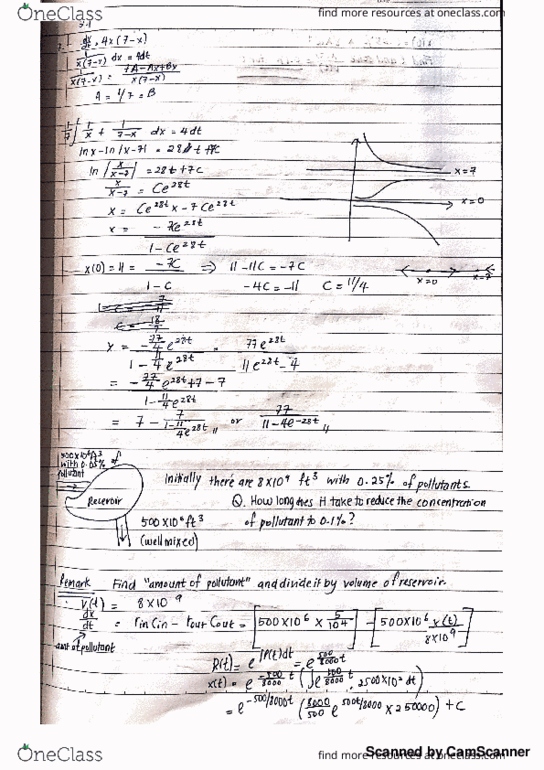 OneClass
find more resources at oneclass.com
7.1
7. dx/dt = 4x(7-x)
1/x(7-x) dx = 4dt
1/x(7-x) = 7A-Ax+Bx/x(7-x)
A = 1/7 = B
1/7 ∫ 1/x + 1/7-x dx = 4dt
ln x - ln|x-7| = 28t + 7C
ln |x/x-7| = 28t + 7C
x/x-7 = Ce^28t
x = Ce^28t x - 7Ce^28t
x = -7Ce^28t / 1-Ce^28t
x=7
x=0
x(0) = 11 = -7C/1-C ⇒ 11-11C = -7C
-4C = -11 C = 11/4
x=0
x=7
x = -77/4 e^28t / 1 - 11/4 e^28t = 77e^28t / 11e^28t - 4
= -77/4 e^28t + 7 - 7 / 1 - 11/4 e^28t
= 7 - 7/1-11/4 e^28t or 77/11-4e^-28t
500×10^6 ft³
with 0.05% of
pollutant
Reservoir
500×10^6 ft³
(well mixed)
Initially there are 8×10^9 ft³ with 0.25% of pollutants.
Q. How long does it take to reduce the concentration
of pollutant to 0.1%?
Remark Find "amount of pollutant" and divide it by volume of reservoir.
V(t) = 8×10^9
dx/dt = rin Cin - rour Cout = [500×10^6 × 5/10^4] - [500×10^6 x(t)/8×10^9]
amt of pollutant
R(t) = e^∫P(t)dt = e^500/8000 t
x(t) = e^-500/8000 t (∫e^500/8000 t · 2500×10² dt)
= e^-500/8000t (8000/500 e^500t/8000 × 250000) + C
OneClass
find more resources at oneclass.com
Scanned by CamScanner